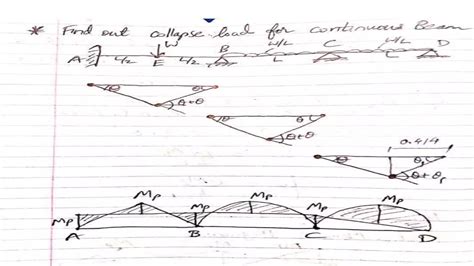 * Find out collapse load for continuous Beam
W W/L W/L
A L/2 E L/2 B L C L D
θ θ
θ+θ
θ θ
θ+θ
0.414
θ θ₁
θ+θ₁
Mp Mp Mp Mp Mp Mp
A B C D